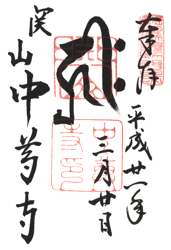 奉拝
平成廿一年
三月廿日
関山中尊寺